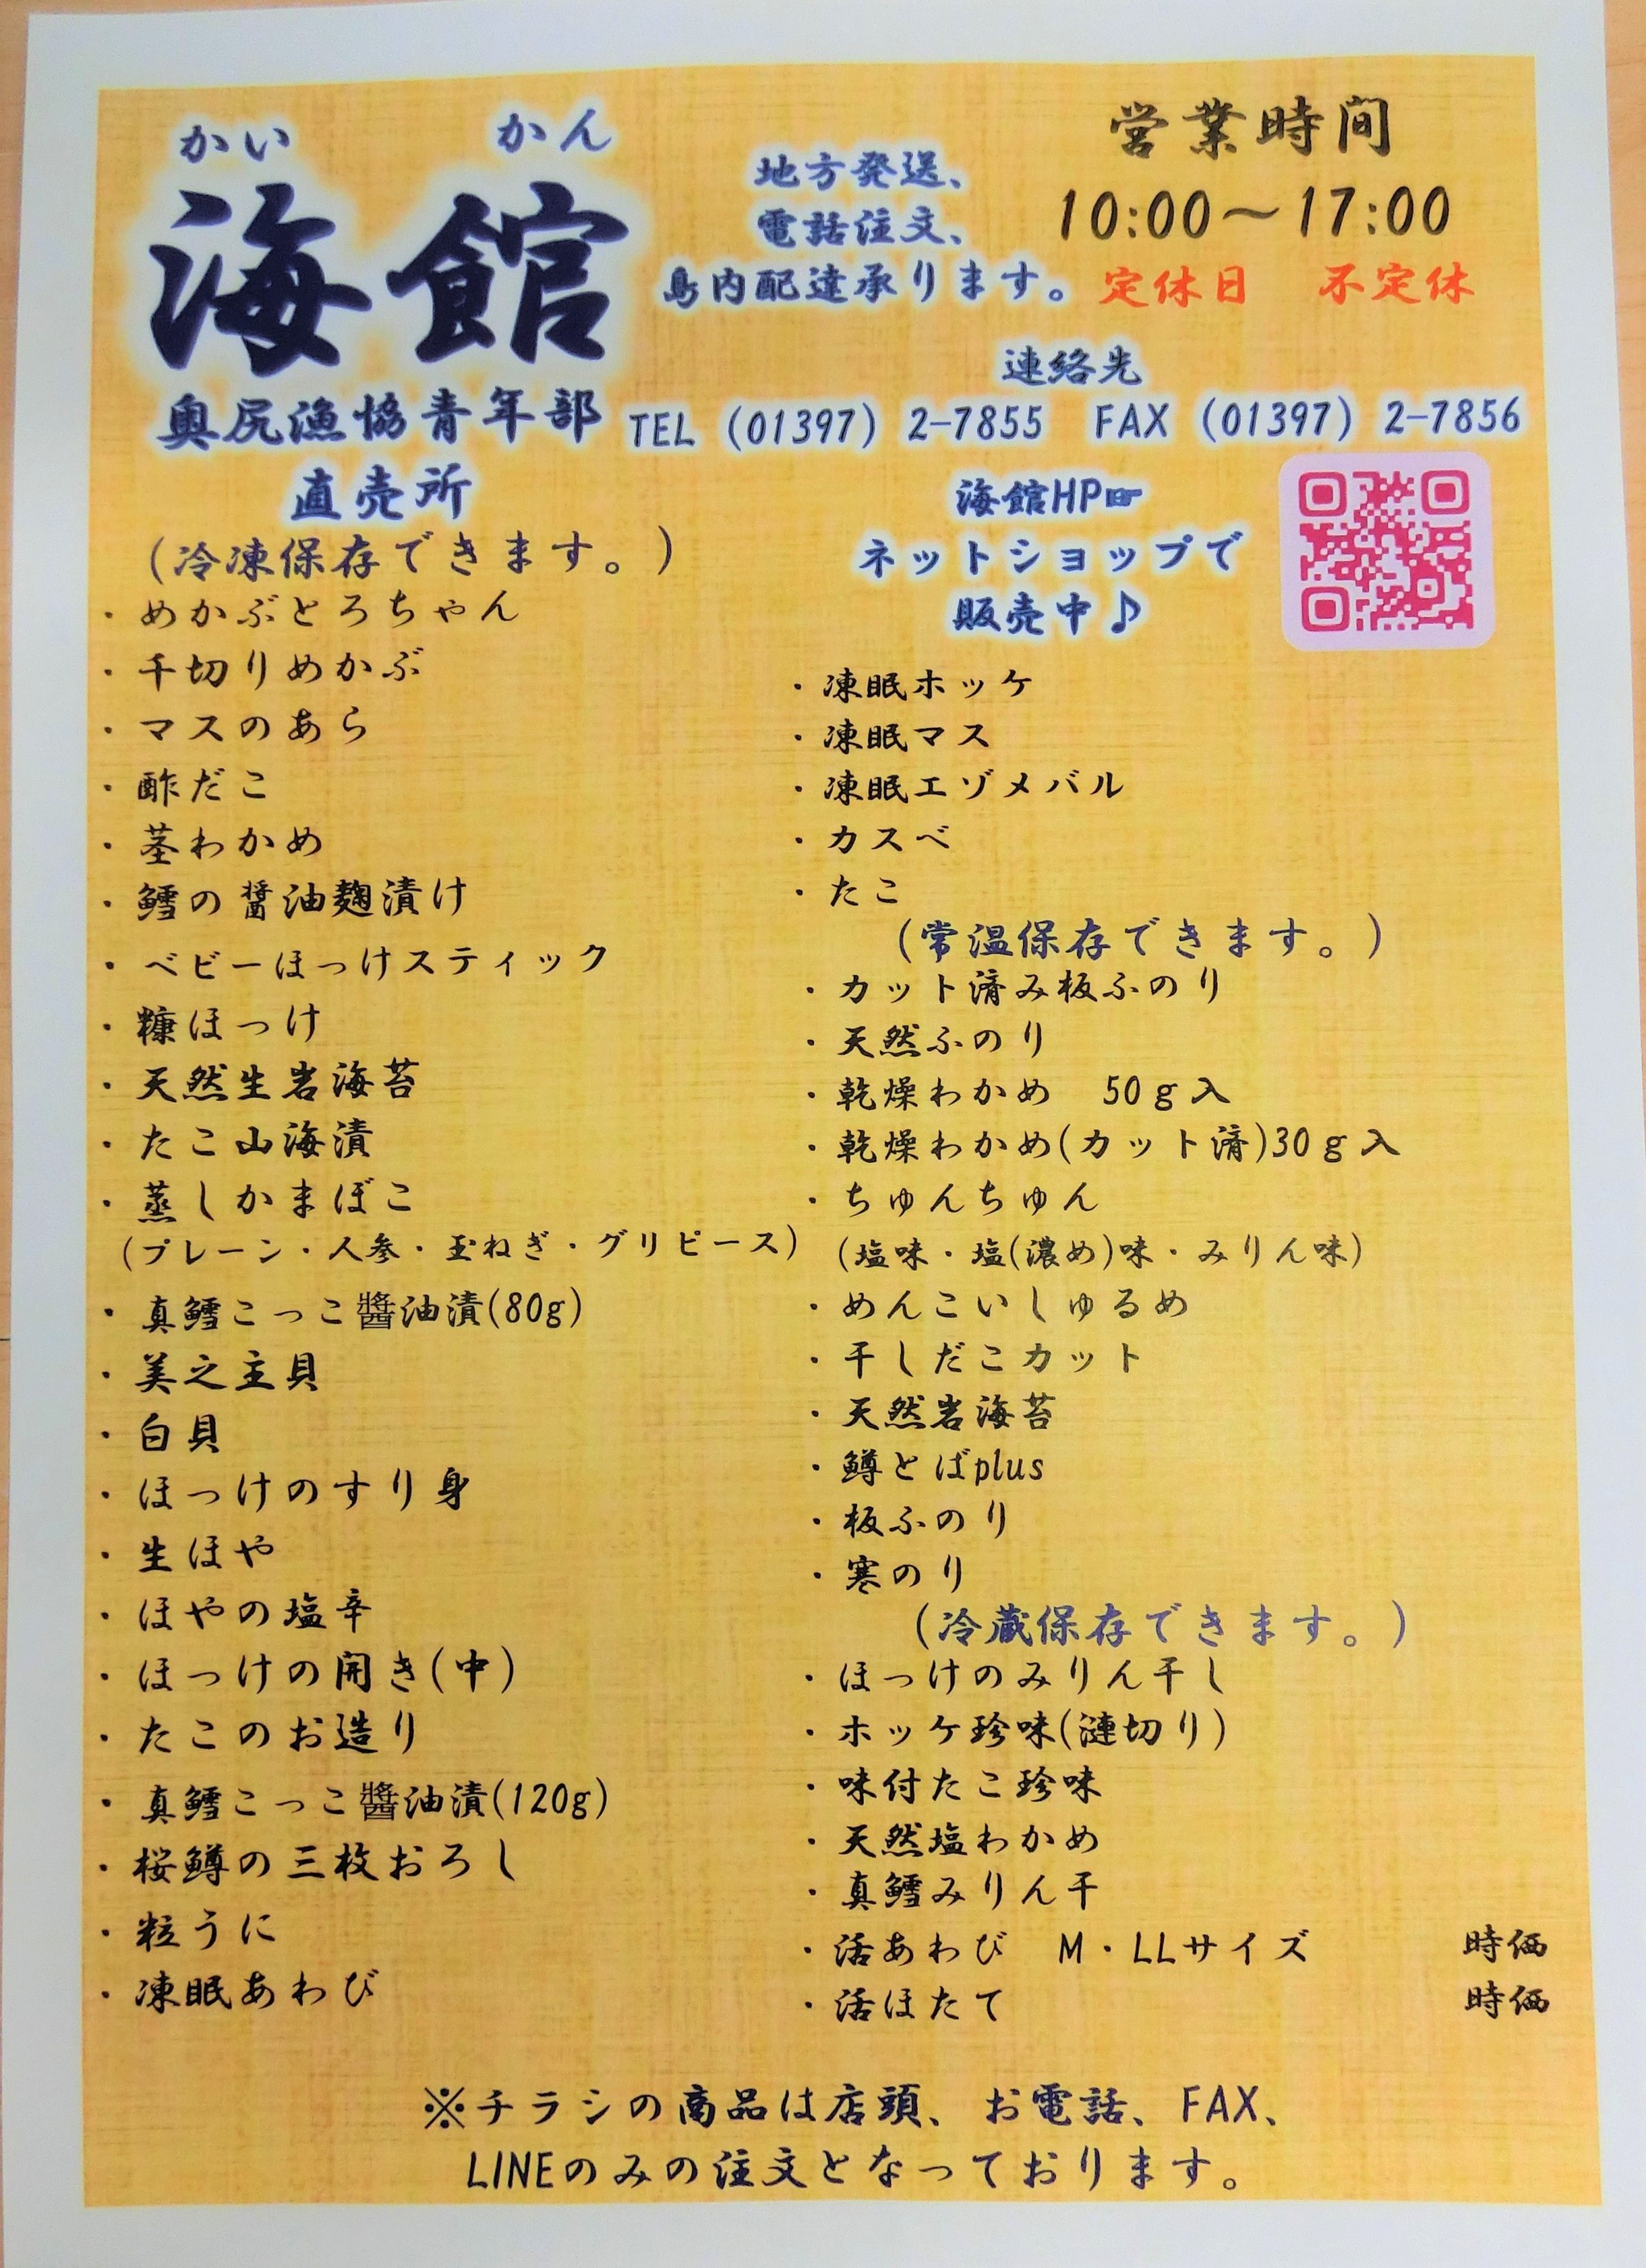 かい かん
海館
奥尻漁協青年部
直売所
地方発送、
電話注文、
島内配達承ります。
営業時間
10:00～17:00
定休日 不定休
連絡先
TEL (01397) 2-7855 FAX (01397) 2-7856
海館HP☞
ネットショップで
販売中♪
(冷凍保存できます。)
・めかぶとろちゃん
・千切りめかぶ
・マスのあら
・酢だこ
・茎わかめ
・鱈の醤油麹漬け
・ベビーほっけスティック
・糠ほっけ
・天然生岩海苔
・たこ山海漬
・蒸しかまぼこ
(プレーン・人参・玉ねぎ・グリピース)
・真鱈こっこ醬油漬(80g)
・美之主貝
・白貝
・ほっけのすり身
・生ほや
・ほやの塩辛
・ほっけの開き(中)
・たこのお造り
・真鱈こっこ醬油漬(120g)
・桜鱒の三枚おろし
・粒うに
・凍眠あわび
・凍眠ホッケ
・凍眠マス
・凍眠エゾメバル
・カスベ
・たこ
(常温保存できます。)
・カット済み板ふのり
・天然ふのり
・乾燥わかめ 50ｇ入
・乾燥わかめ(カット済)30ｇ入
・ちゅんちゅん
(塩味・塩(濃め)味・みりん味)
・めんこいしゅるめ
・干しだこカット
・天然岩海苔
・鱒とばplus
・板ふのり
・寒のり
(冷蔵保存できます。)
・ほっけのみりん干し
・ホッケ珍味(漣切り)
・味付たこ珍味
・天然塩わかめ
・真鱈みりん干
・活あわび M・LLサイズ 時価
・活ほたて 時価
※チラシの商品は店頭、お電話、FAX、
LINEのみの注文となっております。